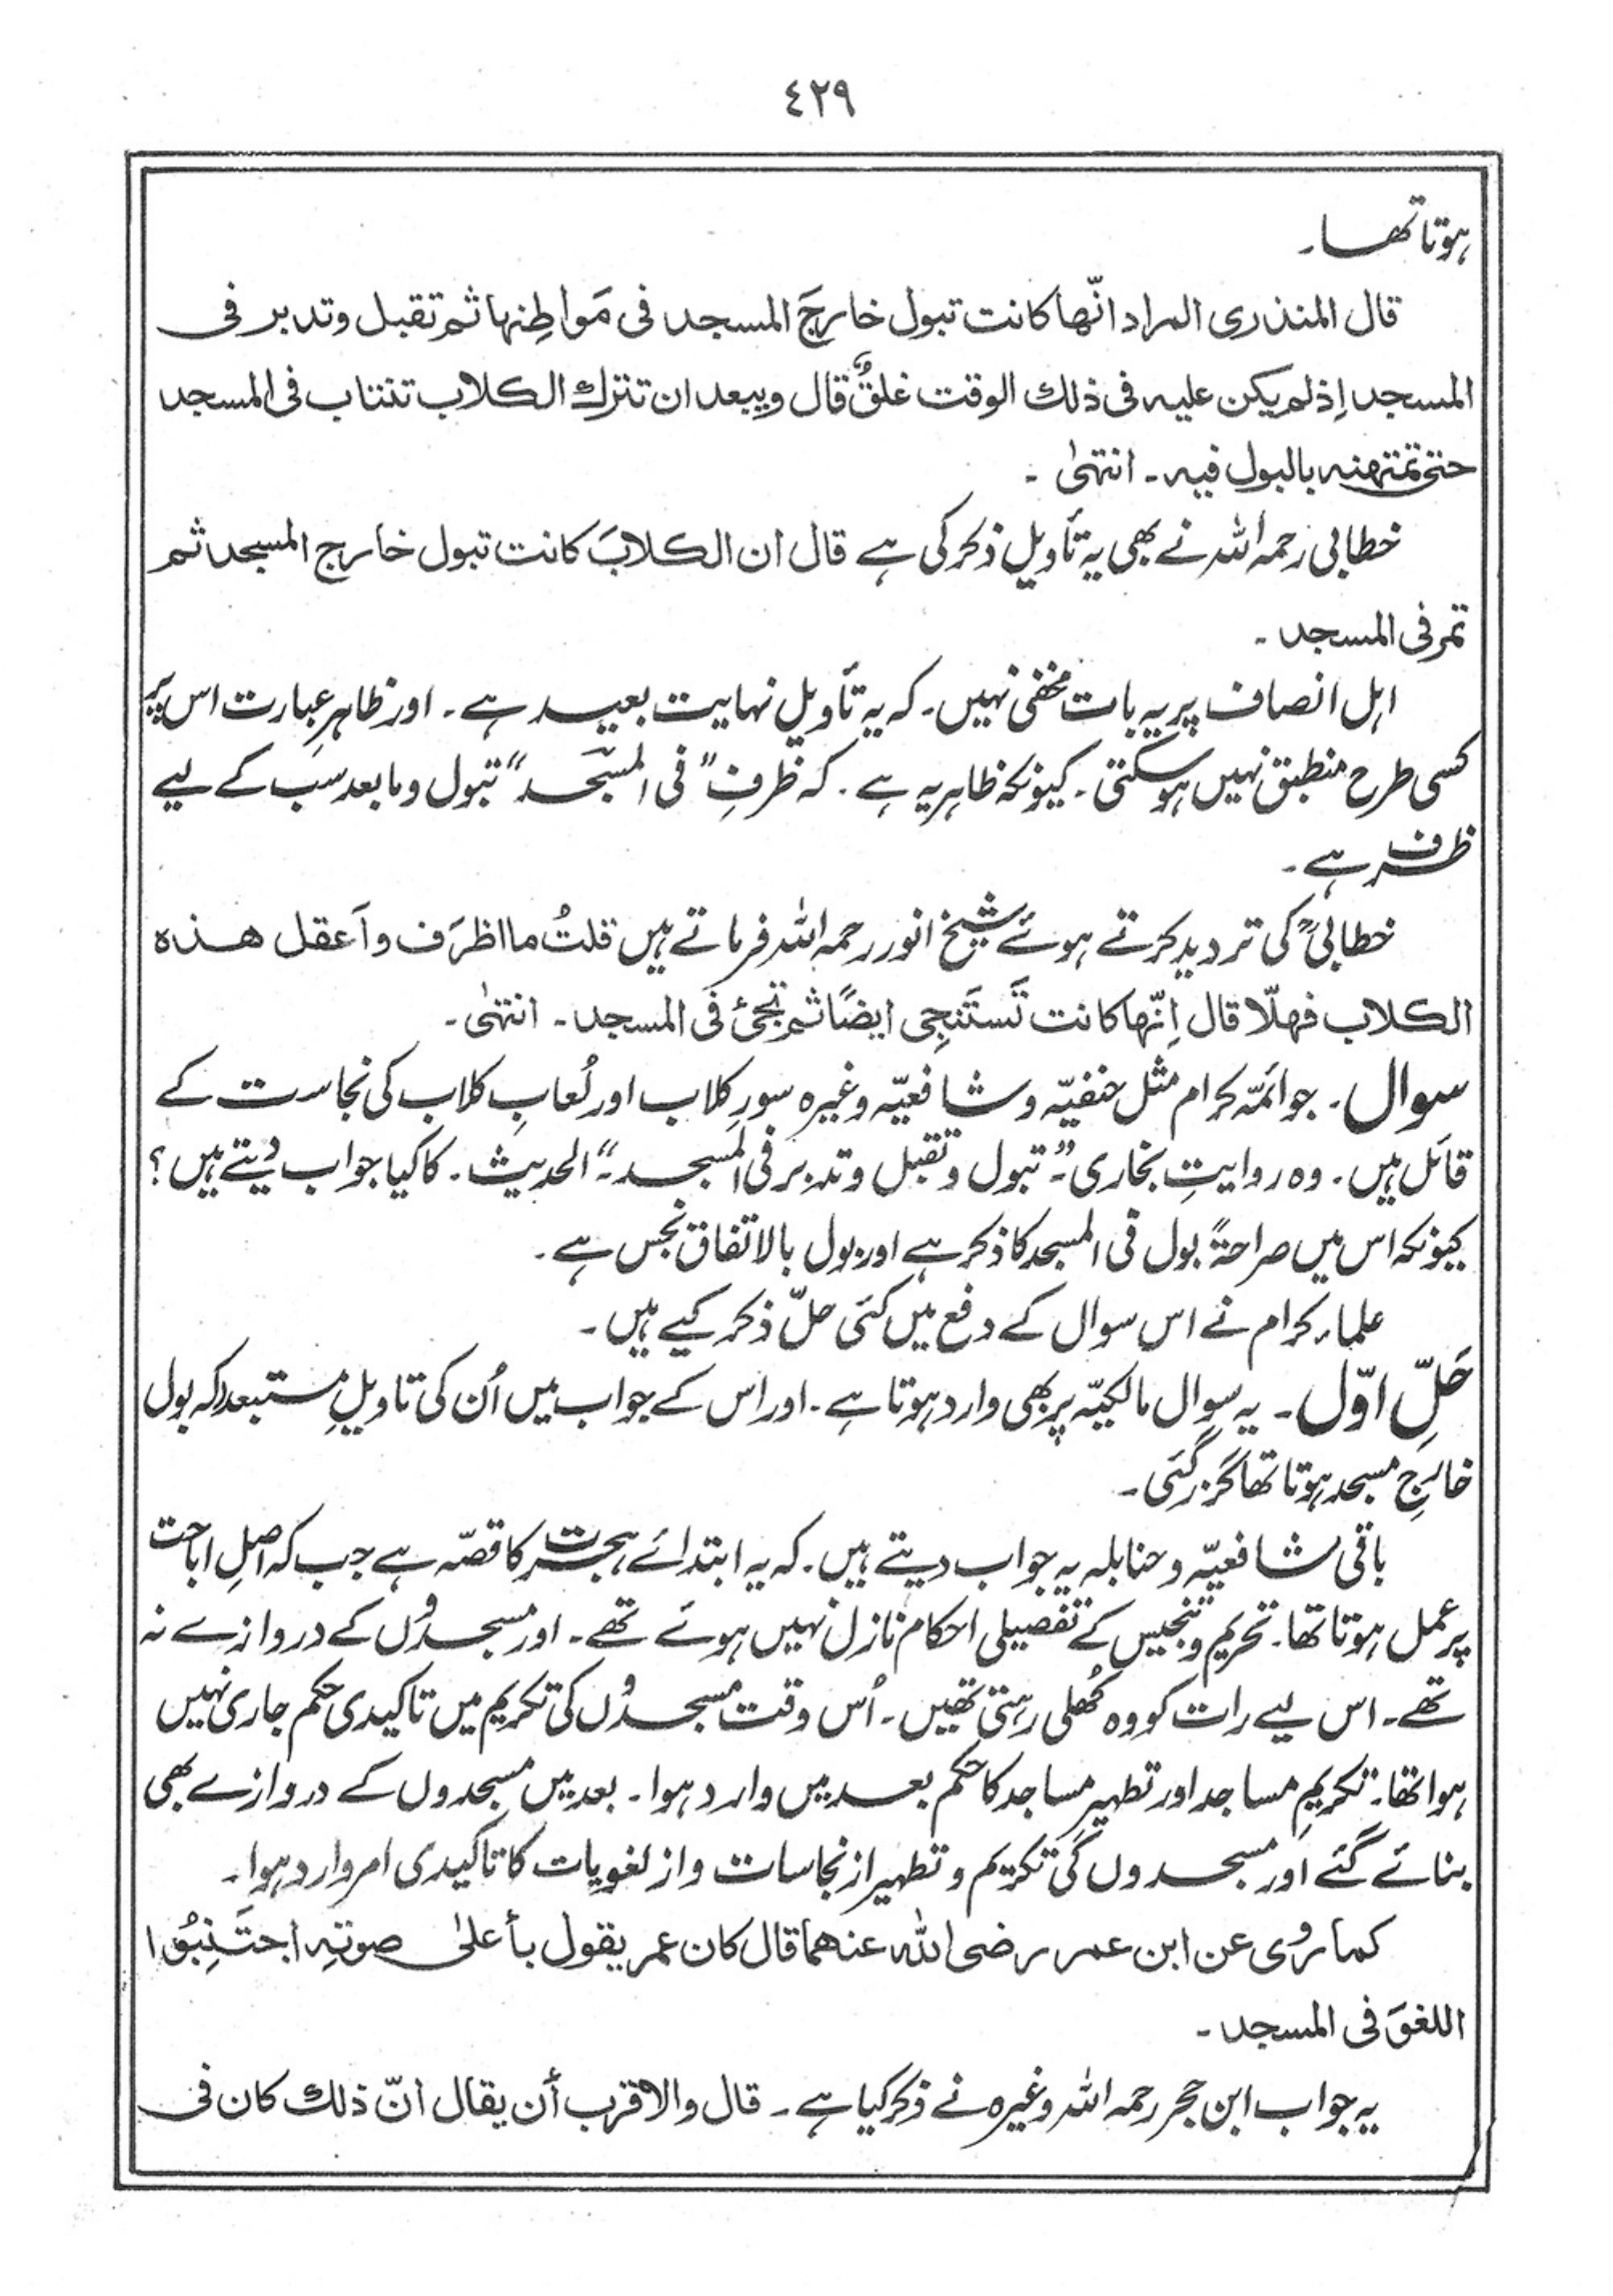 ٤٢٩
ہوتا تھا۔
قال المنذری المراد انّها كانت تبول خارجَ المسجد فی مَواطِنها ثم تقبل وتدبر فی
المسجد اِذ لم يكن عليه فی ذلك الوقت غلقٌ قال ويبعد ان تترك الكلاب تنتاب فی المسجد
حتی تمتهنه بالبول فيه ۔ انتهیٰ ۔
خطابی رحمہ اللہ نے بھی یہ تأویل ذکر کی ہے قال ان الكلابَ كانت تبول خارج المسجد ثم
تمر فی المسجد ۔
اہل انصاف پر یہ بات مخفی نہیں۔ کہ یہ تأویل نہایت بعید ہے۔ اور ظاہرِ عبارت اس پر
کسی طرح منطبق نہیں ہو سکتی۔ کیونکہ ظاہر یہ ہے۔ کہ ظرفِ ”فی المسجد“ تبول و ما بعد سب کے لیے
ظرف ہے۔
خطابیؒ کی تردید کرتے ہوئے شیخ انور رحمہ اللہ فرماتے ہیں قلتُ ما اظرَف و اَعقل هذه
الكلاب فهلّا قال اِنّها كانت تَستَنجِی ايضًا ثم تجیٔ فی المسجد ۔ انتهیٰ ۔
سوال۔ جو ائمّہ کرام مثل حنفیّہ و شافعیّہ وغیرہ سورِ کلاب اور لُعابِ کلاب کی نجاست کے
قائل ہیں۔ وہ روایتِ بخاری ”تبول وتقبل وتدبر فی المسجد“ الحدیث۔ کا کیا جواب دیتے ہیں؟
کیونکہ اس میں صراحۃً بول فی المسجد کا ذکر ہے اور بول بالاتفاق نجس ہے۔
علماء کرام نے اس سوال کے دفع میں کئی حلّ ذکر کیے ہیں۔
حَلِّ اوّل۔ یہ سوال مالکیّہ پر بھی وارد ہوتا ہے۔ اور اس کے جواب میں اُن کی تاویلِ مستبعد کہ بول
خارجِ مسجد ہوتا تھا گزر گئی۔
باقی شافعیّہ و حنابلہ یہ جواب دیتے ہیں۔ کہ یہ ابتدائے ہجرت کا قصّہ ہے جب کہ اصلِ اباحت
پر عمل ہوتا تھا۔ تحریم و تنجیس کے تفصیلی احکام نازل نہیں ہوئے تھے۔ اور مسجدوں کے دروازے نہ
تھے۔ اس لیے رات کو وہ کُھلی رہتی تھیں۔ اُس وقت مسجدوں کی تکریم میں تاکیدی حکم جاری نہیں
ہوا تھا۔ تکریمِ مساجد اور تطہیرِ مساجد کا حکم بعد میں وارد ہوا۔ بعد میں مسجدوں کے دروازے بھی
بنائے گئے اور مسجدوں کی تکریم و تطہیر از نجاسات و از لغویات کا تاکیدی امر وارد ہوا۔
كما رُوی عن ابن عمر رضی الله عنهما قال كان عمر يقول بأعلیٰ صوتِه اجتَنِبُوا
اللغوَ فی المسجد ۔
یہ جواب ابن حجر رحمہ اللہ وغیرہ نے ذکر کیا ہے۔ قال والاقرب أن يقال انّ ذلك كان فی